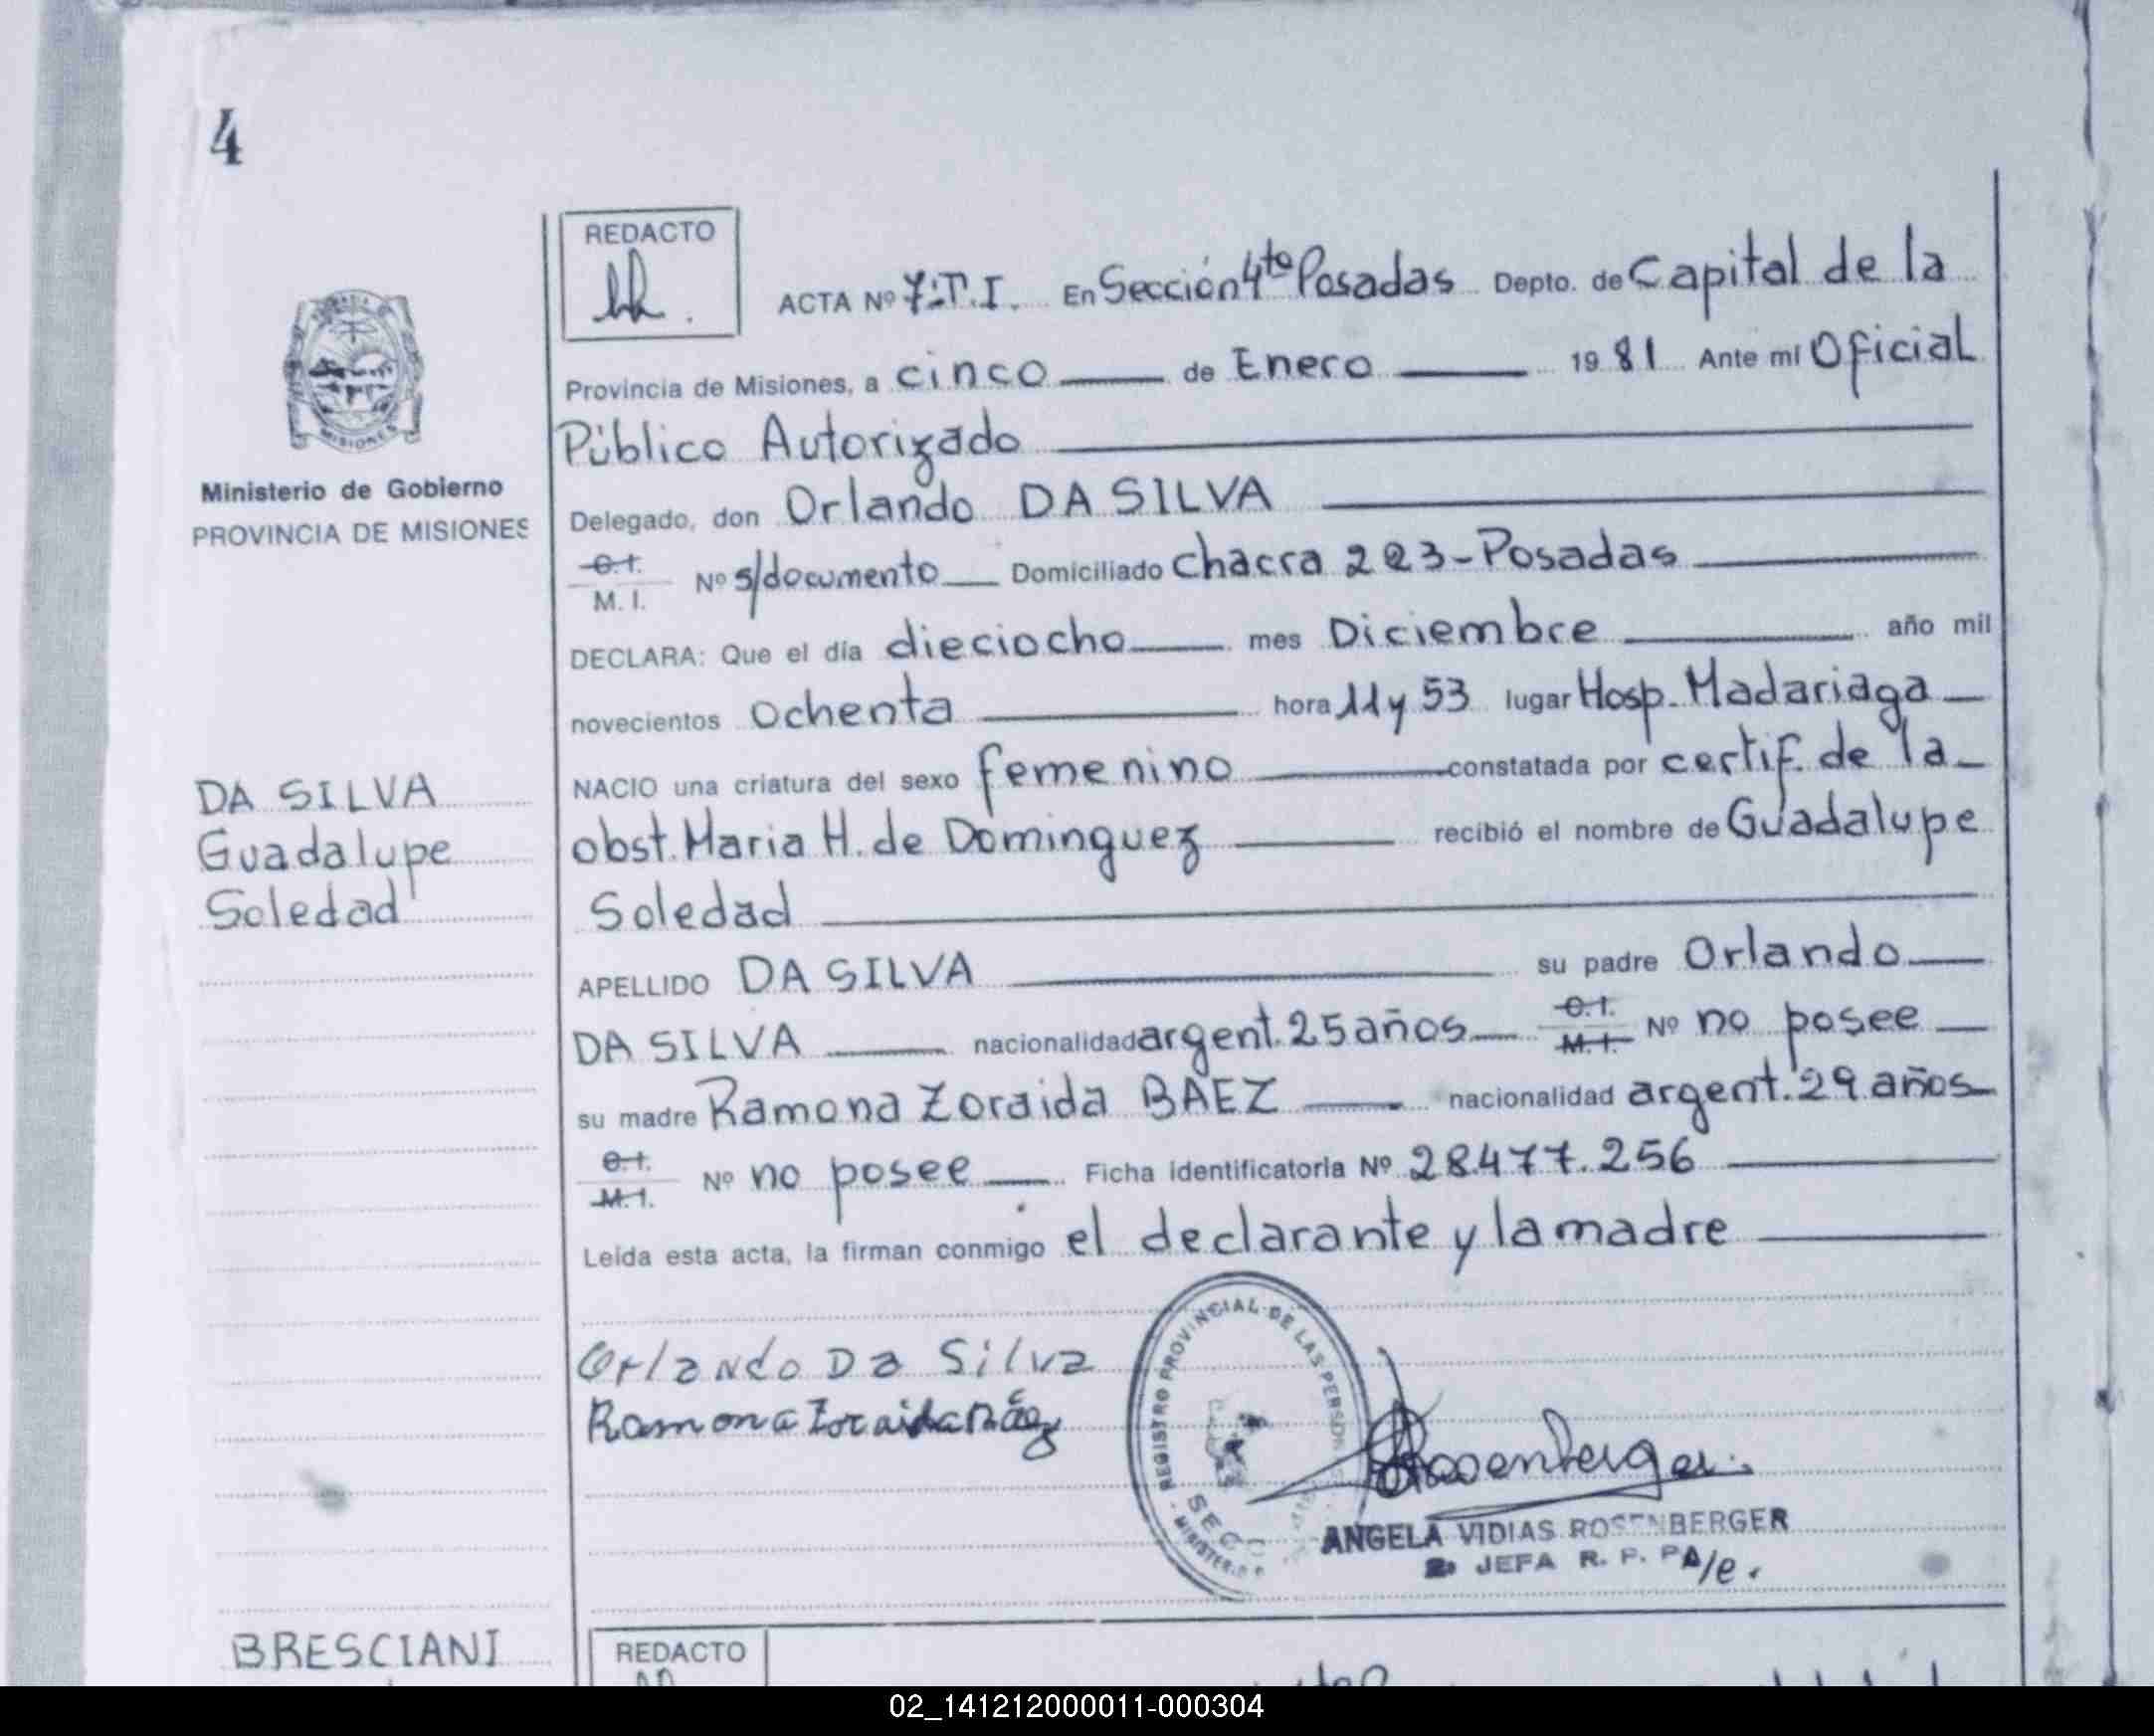 4
REDACTO
ACTA Nº 7:T.I. En Sección 4ta Posadas Depto. de Capital de la
Provincia de Misiones, a cinco de Enero 1981 Ante mí Oficial
Público Autorizado
Ministerio de Gobierno
PROVINCIA DE MISIONES
Delegado, don Orlando DA SILVA
C.I.
M. I. Nº s/documento Domiciliado Chacra 223-Posadas
DECLARA: Que el día dieciocho mes Diciembre año mil
novecientos ochenta hora 11 y 53 lugar Hosp. Madariaga
NACIO una criatura del sexo femenino constatada por certif. de la
DA SILVA
Guadalupe
Soledad
obst. Maria H. de Dominguez recibió el nombre de Guadalupe
Soledad
APELLIDO DA SILVA su padre Orlando
DA SILVA nacionalidad argent. 25 años C.I. M.I. Nº no posee
su madre Ramona Zoraida BAEZ nacionalidad argent. 29 años
C.I. M.I. Nº no posee Ficha identificatoria Nº 28.477.256
Leída esta acta, la firman conmigo el declarante y la madre
Orlando Da Silva
Ramona Zoraida Báez
REGISTRO PROVINCIAL DE LAS PERSONAS
Rosenberger
ANGELA VIDIAS ROSENBERGER
JEFA R. P. P. A/e.
BRESCIANI
REDACTO
02_141212000011-000304